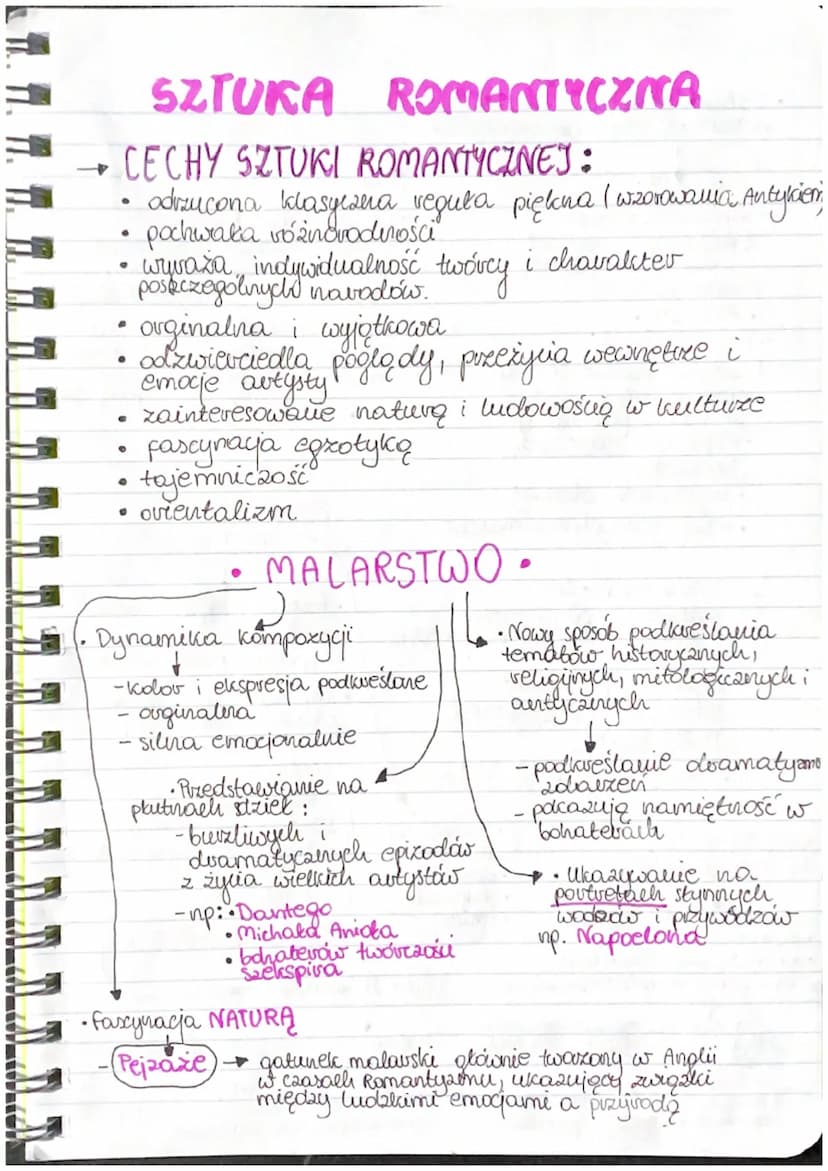 SZTUKA ROMANTYCZNA
→ CECHY SZTUKI ROMANTYCZNEJ:
• odrzucona klasyczna reguła piękna (wzorowania Antykiem)
• pochwała różnorodności
• wyraża indywidualność twórcy i charakter
poszczególnych narodów.
• orginalna i wyjątkowa
• odzwierciedla poglądy, przeżycia wewnętrze i
emocje artysty
• zainteresowanie naturą i ludowością w kulturze
• fascynacja egzotyką
• tajemniczość
• orientalizm
• MALARSTWO •
• Dynamika kompozycji
- kolor i ekspresja podkreślone
- orginalna
- silna emocjonalnie
• Przedstawianie na
płutnach dzieł:
- burzliwych i
dramatycznych epizodów
z życia wielkich artystów
- np: • Dantego
• Michała Anioła
• bohaterów twórczości
Szekspira
• Nowy sposób podkreślania
tematów historycznych,
religijnych, mitologicznych i
antycznych
- podkreślanie dramatyzmo
zdarzeń
- pokazują namiętność w
bohaterach
• Ukazywanie na
portretach słynnych
wodzów i przywódzów
np. Napoelona
• Fascynacja NATURĄ
- Pejzaże → gatunek malarski głównie tworzony w Anglii
w czasach Romantyzmu, ukazujący związki
między ludzkimi emocjami a przyrodą